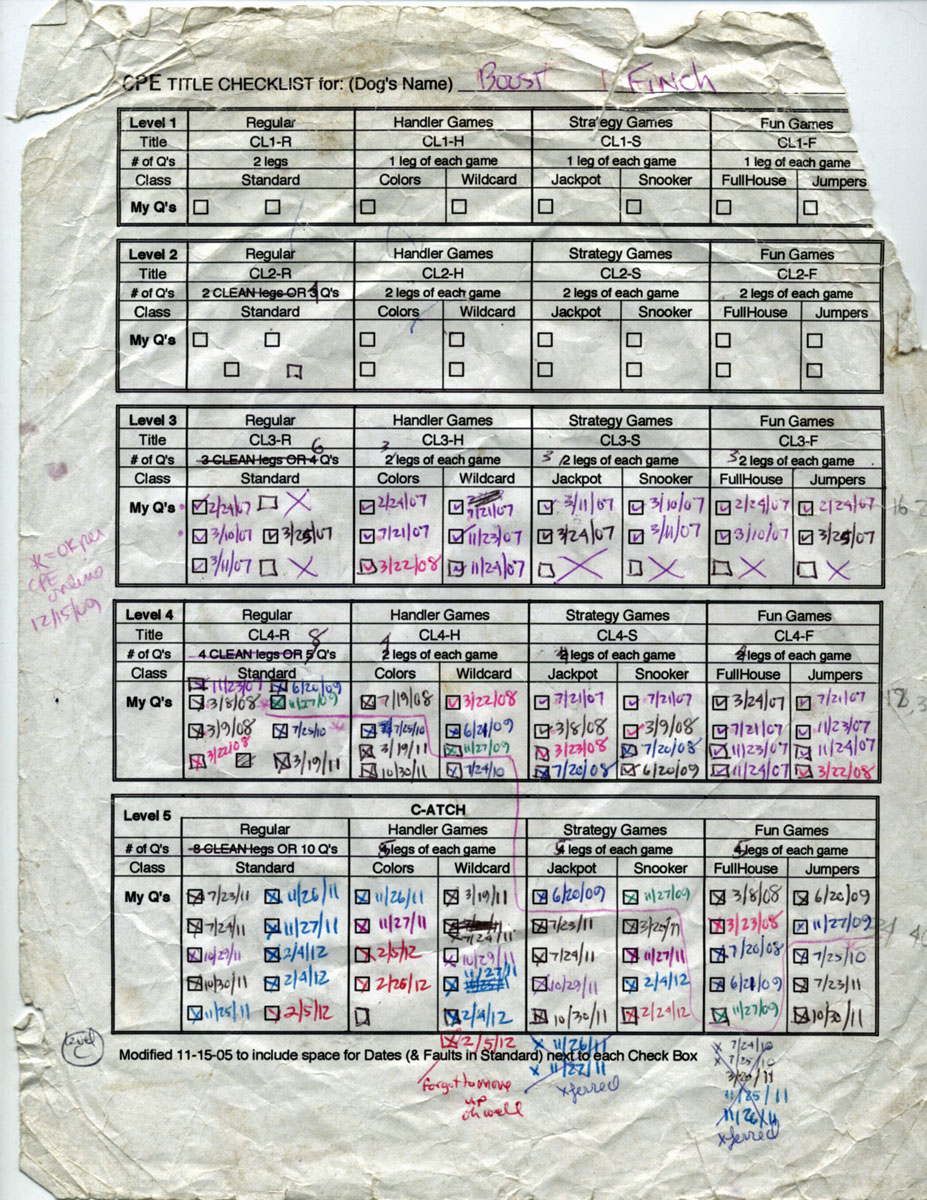 CPE TITLE CHECKLIST for: (Dog's Name) Boost Finch
Level 1 Regular Handler Games Strategy Games Fun Games
Title CL1-R CL1-H CL1-S CL1-F
# of Q's 2 legs 1 leg of each game 1 leg of each game 1 leg of each game
Class Standard Colors Wildcard Jackpot Snooker FullHouse Jumpers
My Q's
Level 2 Regular Handler Games Strategy Games Fun Games
Title CL2-R CL2-H CL2-S CL2-F
# of Q's 2 CLEAN legs OR 3 4 Q's 2 legs of each game 2 legs of each game 2 legs of each game
Class Standard Colors Wildcard Jackpot Snooker FullHouse Jumpers
My Q's
Level 3 Regular Handler Games Strategy Games Fun Games
Title CL3-R CL3-H CL3-S CL3-F
6 3 3 3
# of Q's 3 CLEAN legs OR 4 Q's 2 legs of each game 2 legs of each game 2 legs of each game
Class Standard Colors Wildcard Jackpot Snooker FullHouse Jumpers
My Q's 2/24/07 X 2/24/07 7/21/07 3/11/07 3/10/07 2/24/07 2/24/07
3/10/07 3/25/07 7/21/07 11/23/07 3/24/07 3/11/07 3/10/07 3/25/07
3/11/07 X 3/22/08 11/24/07 X X X X
* = OK per
CPE
online
12/15/09
Level 4 Regular Handler Games Strategy Games Fun Games
Title CL4-R CL4-H CL4-S CL4-F
8 4
# of Q's 4 CLEAN legs OR 5 Q's 2 legs of each game legs of each game legs of each game
Class Standard Colors Wildcard Jackpot Snooker FullHouse Jumpers
11/23/07 6/20/09
My Q's 3/8/08 * 11/27/09 7/19/08 3/22/08 7/21/07 7/21/07 3/24/07 7/21/07
3/9/08 7/25/10 * 7/25/10 6/21/09 3/8/08 3/9/08 7/21/07 11/23/07
3/22/08 3/19/11 3/19/11 11/27/09 3/23/08 7/20/08 11/23/07 11/24/07
10/30/11 7/24/10 7/20/08 6/20/09 11/24/07 3/22/08
Level 5 C-ATCH
Regular Handler Games Strategy Games Fun Games
# of Q's 8 CLEAN legs OR 10 Q's 5 legs of each game 5 legs of each game 5 legs of each game
Class Standard Colors Wildcard Jackpot Snooker FullHouse Jumpers
My Q's 7/23/11 11/26/11 11/26/11 3/19/11 6/20/09 11/27/09 3/8/08 6/20/09
7/24/11 11/27/11 11/27/11 7/24/11 7/23/11 3/20/11 3/23/08 11/27/09
10/29/11 2/4/12 2/5/12 10/29/11 7/24/11 11/27/11 7/20/08 7/25/10
10/30/11 2/4/12 2/25/12 11/27/11 10/29/11 2/4/12 6/21/09 7/23/11
11/25/11 2/5/12 2/4/12 10/30/11 2/24/12 11/27/09 10/30/11
2/5/12 x 11/26/11 x 7/24/10
Modified 11-15-05 to include space for Dates (& Faults in Standard) next to each Check Box
x 11/27/11 x 7/25/10
forgot to move xferred
up
oh well
11/25/11
11/26/11
xferred